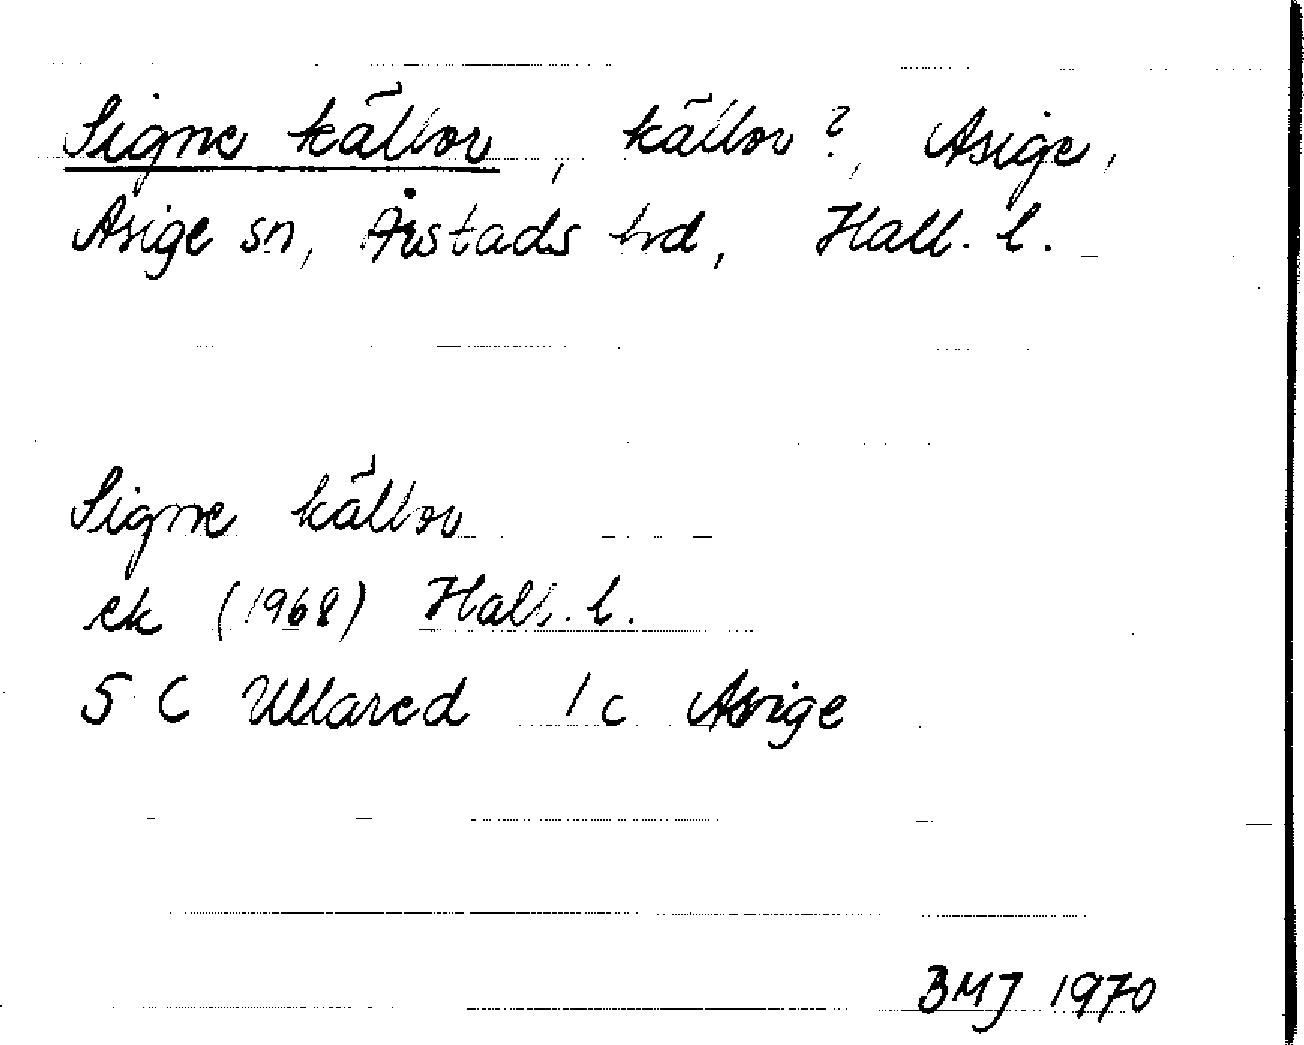 Signe källor, källor?, Asige,
Asige sn, Årstads hd, Hall. l.
Signe källor
ek (1968) Hall. l.
5 C Ullared 1 c Asige
BMJ 1970